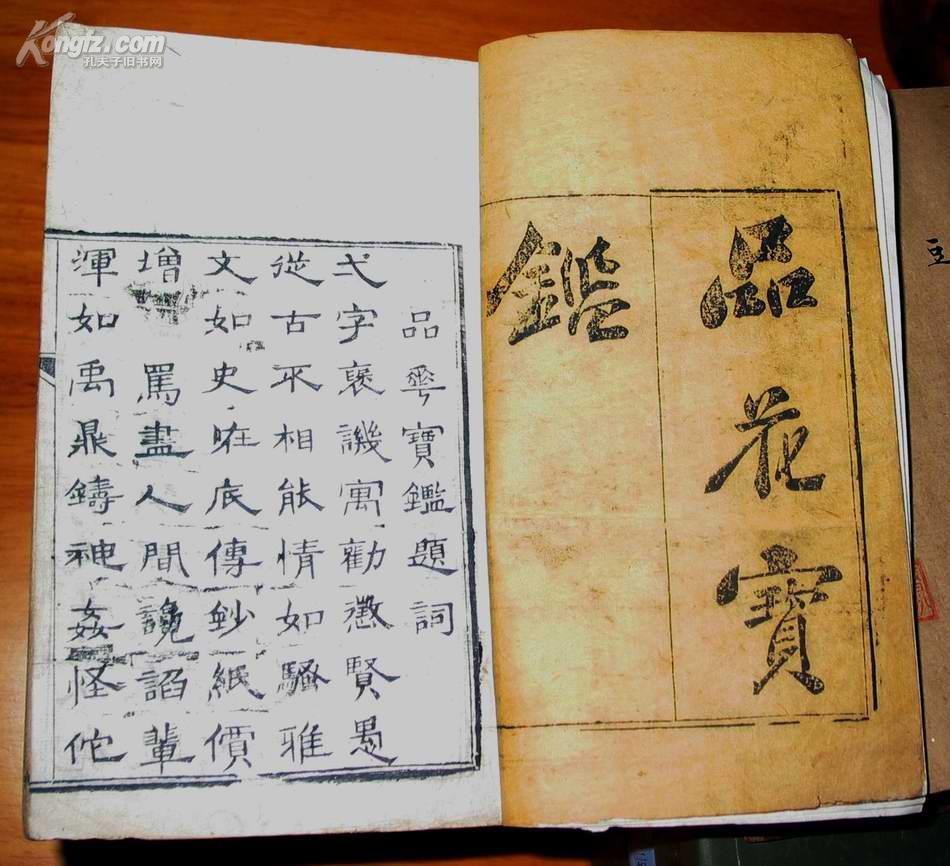 Kongfz.com
孔夫子旧书网
品花寶
鑑
品華寶鑑題詞
弌字褒譏寓勸懲賢愚
從古不相能情如騷雅
文如史啀底傳鈔紙價
增罵盡人間讒諂輩
渾如禹鼎鑄神姦怪佗
主